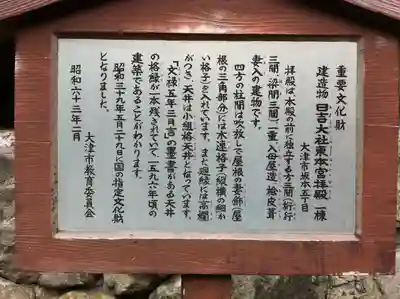 重要文化財
建造物 日吉大社東本宮拝殿 一棟
大津市坂本五丁目
拝殿は、本殿の前に独立する方三間(桁行
三間、梁間三間)一重、入母屋造、桧皮葺、
妻入の建物です。
四方の柱間は吹放しで屋根の妻部(屋
根の三角部分)には木連格子(縦横の細か
い格子)を入れています。また廻縁には高欄
がつき、天井は小組格天井となっています。
「文禄五年三月吉」の墨書がある天井
の格縁が一本残されていて、一五九六年頃の
建築であることがわかります。
昭和三十九年五月二十九日に国の指定文化財
となりました。
昭和六十三年二月
大津市教育委員会